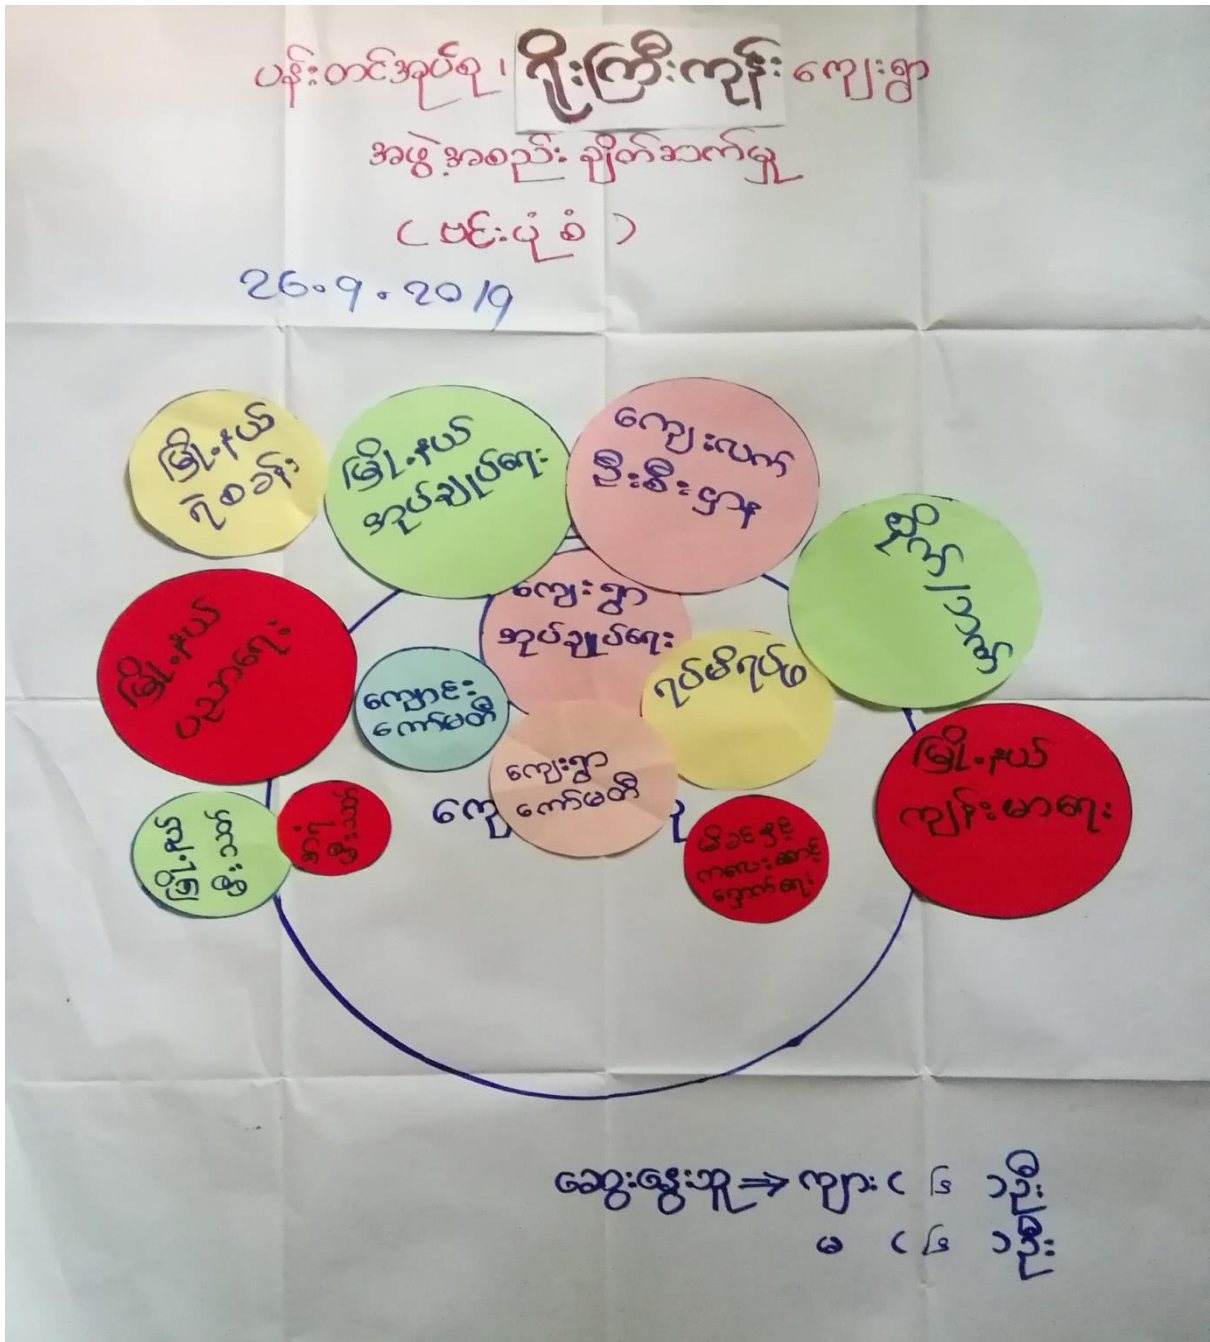 ပန်းတင်အုပ်စု၊ ရိုးကြီးကုန်း ကျေးရွာ
အဖွဲ့အစည်း ချိတ်ဆက်မှု
( ဗင်းပုံစံ )
26.9.2019
မြို့နယ်
ရဲစခန်း
မြို့နယ်
အုပ်ချုပ်ရေး
ကျေးလက်
ဦးစီးဌာန
စိုက်/ဘဏ်
ကျေးရွာ
အုပ်ချုပ်ရေး
မြို့နယ်
ပညာရေး
ကျောင်း
ကော်မတီ
ရပ်မိရပ်ဖ
ကျေးရွာ
ကော်မတီ
မြို့နယ်
ကျန်းမာရေး
မြို့နယ်
မီးသတ်
အရံ
မီးသတ်
မိခင်နှင့်
ကလေးစောင့်
ရှောက်ရေး
ကျေ
ဆွေးနွေးသူ ⇒ ကျား ( ၆ ) ဦး
မ ( ၆ ) ဦး